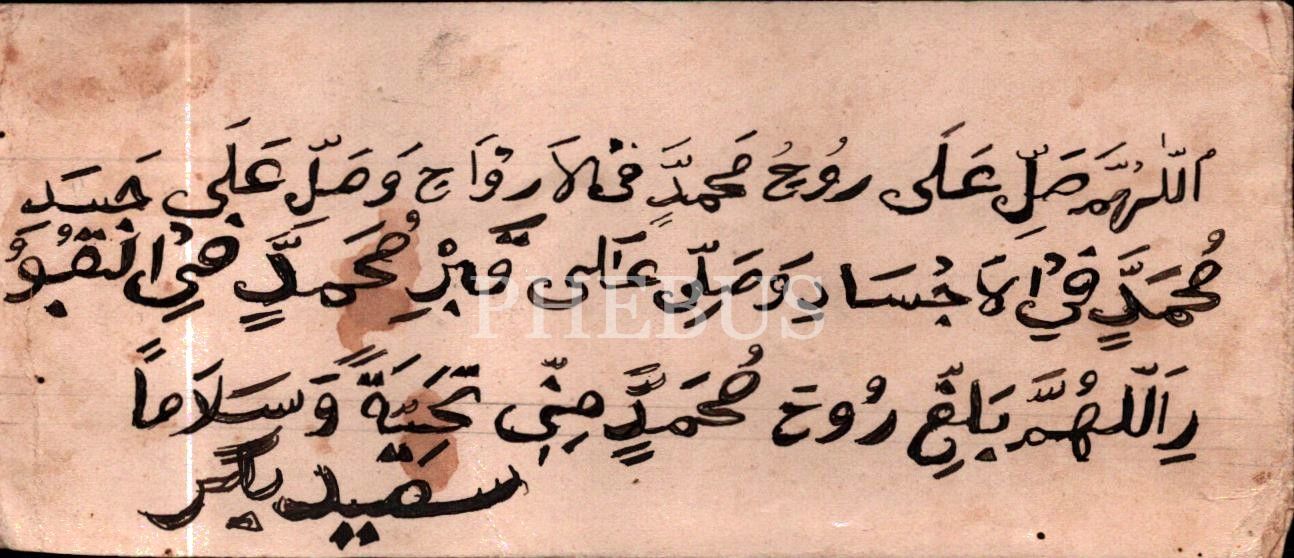 اَللّٰهُمَّ صَلِّ عَلَى رُوحُ مُحَمَّدٍ فِى الاَرْوَاحِ وَصَلِّ عَلَى جَسَدِ
مُحَمَّدٍ فِي الاَجْسَادِ وَصَلِّ عَلَى قَبْرِ مُحَمَّدٍ فِي الْقُبُو
رِ اَللّٰهُمَّ بَلِّغْ رُوحَ مُحَمَّدٍ مِنِّى تَحِيَّةً وَسَلَامًا
PHEBUS